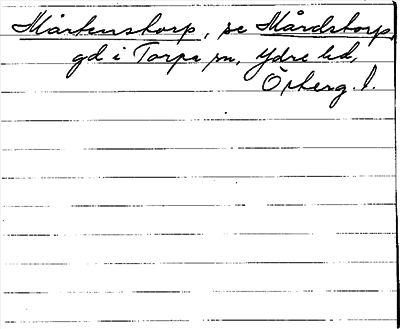 Mårtenstorp, se Mårdstorp,
gd i Torpa sn, Ydre hd,
Östherg. l.